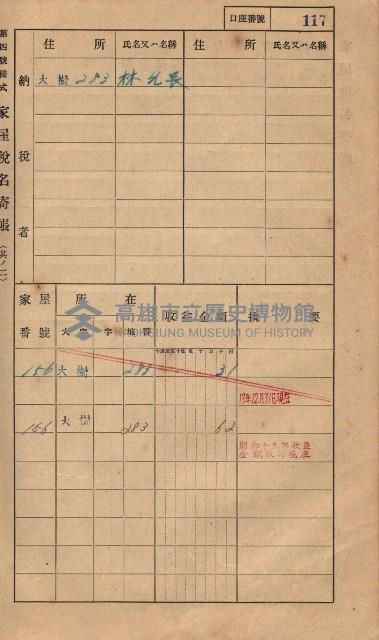 口座番號 117
第四號樣式 家屋稅名寄帳 (其ノ一)
納稅者
住所 氏名又ハ名稱 住所 氏名又ハ名稱
大樹 283 林允長
家屋番號 所在 收益金額 摘要
大字 字 地番
156 大樹 283 31
13年12月31日現在
156 大樹 283 62
昭和十九年收益
金額改訂現在
高雄市立歷史博物館
KAOHSIUNG MUSEUM OF HISTORY